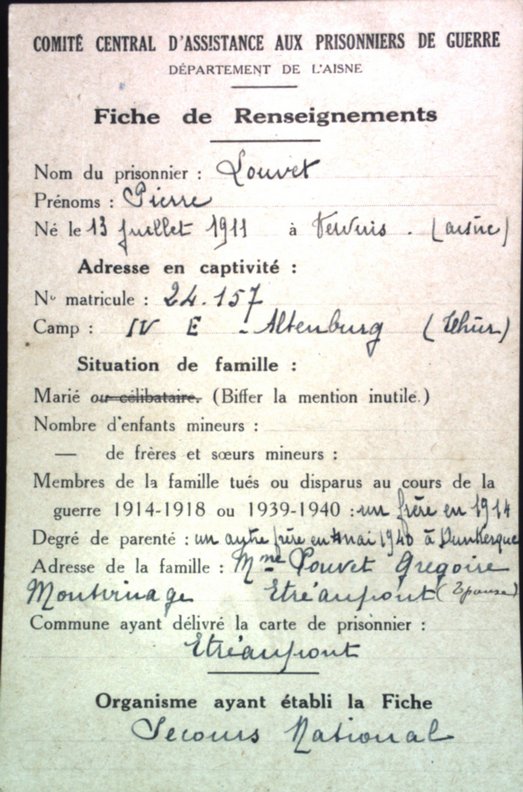 COMITÉ CENTRAL D'ASSISTANCE AUX PRISONNIERS DE GUERRE
DÉPARTEMENT DE L'AISNE
Fiche de Renseignements
Nom du prisonnier : Louvet
Prénoms : Pierre
Né le 13 juillet 1911 à Vervins . (aisne)
Adresse en captivité :
N° matricule : 24.157
Camp : IV E - Altenburg (Thür)
Situation de famille :
Marié ou célibataire. (Biffer la mention inutile.)
Nombre d'enfants mineurs :
— de frères et sœurs mineurs :
Membres de la famille tués ou disparus au cours de la
guerre 1914-1918 ou 1939-1940 : un frère en 1914
Degré de parenté : un autre frère en mai 1940 à Dunkerque
Adresse de la famille : Mme Louvet Gregoire
Montvinage Etréaupont (Epouse)
Commune ayant délivré la carte de prisonnier :
Etréaupont
Organisme ayant établi la Fiche
Secours National